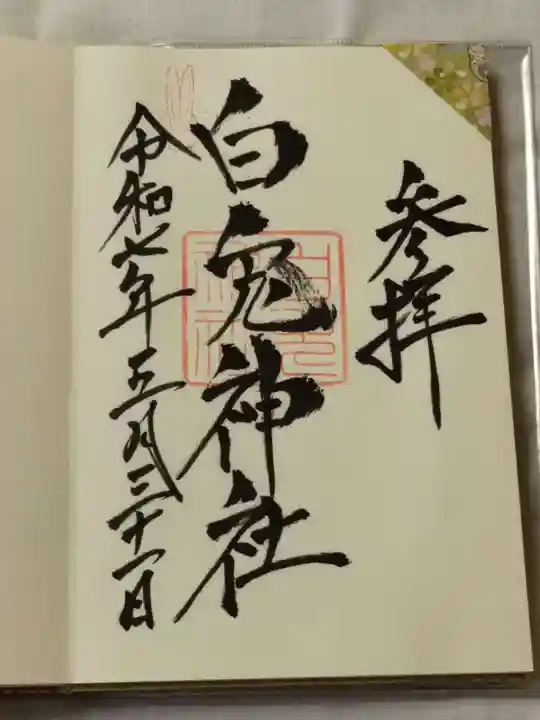 参拝
白兎神社
令和七年五月三十一日